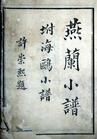 燕蘭小譜
坿海鷗小譜
許崇熙題